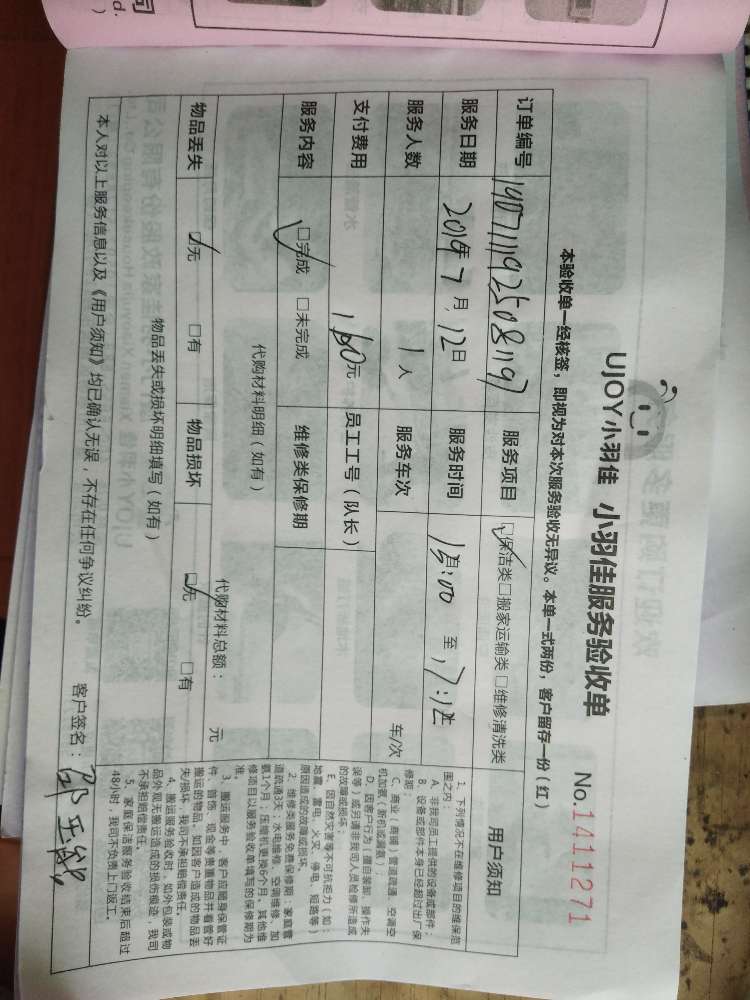 UJOY小羽佳 小羽佳服务验收单
No.1411271
本验收单一经核签，即视为对本次服务验收无异议。本单一式两份，客户留存一份（红）
订单编号 190711192508197 服务项目 保洁类 □搬家运输类 □维修清洗类
服务日期 2019年7月12日 服务时间 至 17:12
服务人数 1人 服务车次 车/次
支付费用 160元 员工工号（队长）
服务内容 □完成 □未完成 维修类保修期
代购材料明细（如有） 代购材料总额： 元
物品丢失 □无 □有 物品损坏 □无 □有
物品丢失或损坏明细填写（如有）
本人对以上服务信息以及《用户须知》均已确认无误，不存在任何争议纠纷。 客户签名：
用户须知
1、下列情况不在维修项目的维保范
围之内：
A、非我司员工提供的设备或部件；
B、设备或部件本身已经超过出厂保
修期；
C、商业（商铺）管道疏通、空调空
机加氨（断机或漏氨）；
D、因客户行为（擅自装卸、操作失
误等）或另请非我司人员检修所造成
的故障或损坏；
E、因自然灾害等不可抗拒力（如：
地震、雷电、火灾、停电、短路等）
原因造成的故障或损坏。
2、维修类服务免费保修期：家庭管
道疏通3天；水电维修、空调维修、加
氨1个月，压缩机更换6个月，其他维
修项目以服务验收单填写的保修期为
准。
3、搬运服务中，客户应随身保管证
件、首饰、现金等贵重物品并看管好
搬运的物品，如因客户造成的物品丢
失/损坏，我司不承担赔偿责任。
4、搬运服务验收时，如外包装或物
品外观无搬运造成的损伤痕迹，我司
不承担赔偿责任。
5、家庭保洁服务验收结束后超过
48小时，我司不负责上门返工。